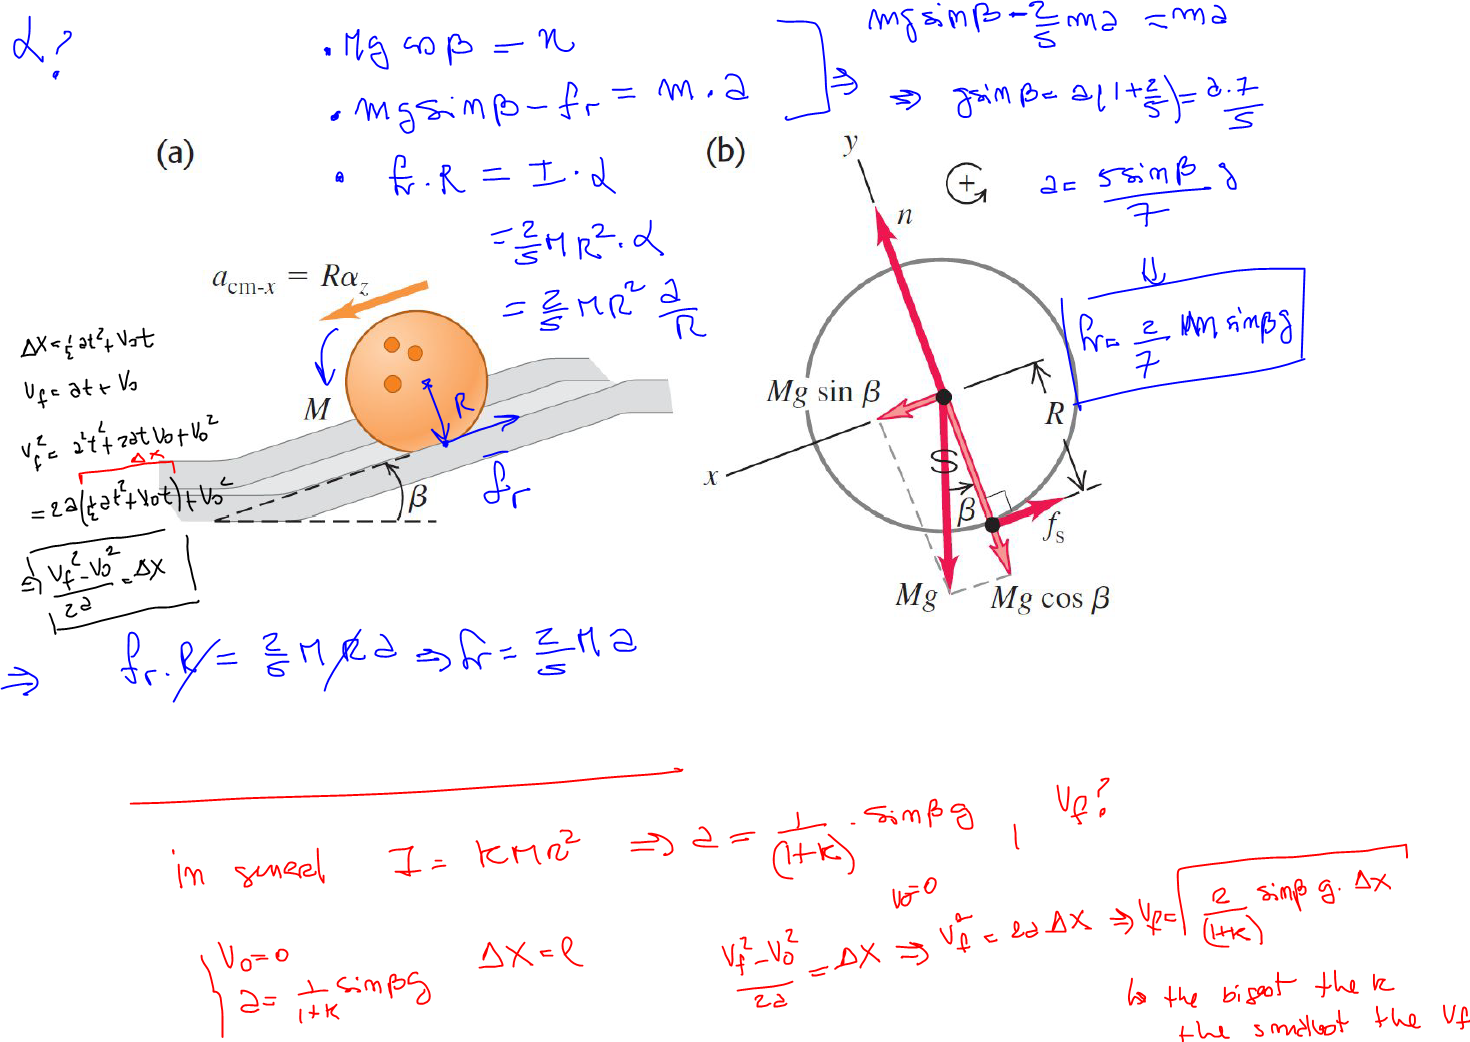 α?
• Mg cos β = n
• mg sin β - fr = m . a
• fr . R = I . α
= 2/5 M R² . α
= 2/5 M R² a/R
mg sin β - 2/5 ma = ma
⇒ ⇒ g sin β = a(1 + 2/5) = a . 7/5
a = 5 sin β/7 g
⇓
fr = 2/7 m sin β g
(a)
a_cm-x = Rα_z
M
R
fr
β
Δx = ½ at² + V₀t
Vf = at + V₀
Vf² = a²t² + 2at V₀ + V₀²
Δx
= 2a(½ at² + V₀t) + V₀²
⇒ Vf² - V₀²/2a = Δx
(b)
y
n
+
Mg sin β
R
x
S
β
fs
Mg
Mg cos β
⇒ fr . R = 2/5 M R a ⇒ fr = 2/5 M a
in general I = K M R² ⇒ a = 1/(1+K) . sin β g , Vf?
V₀ = 0
a = 1/1+K sin β g
Δx = l
Vf² - V₀²/2a = Δx ⇒ Vf² = 2a Δx ⇒ Vf = √2/(1+K) sin β g . Δx
V₀=0
↳ the bigest the K
the smallest the Vf